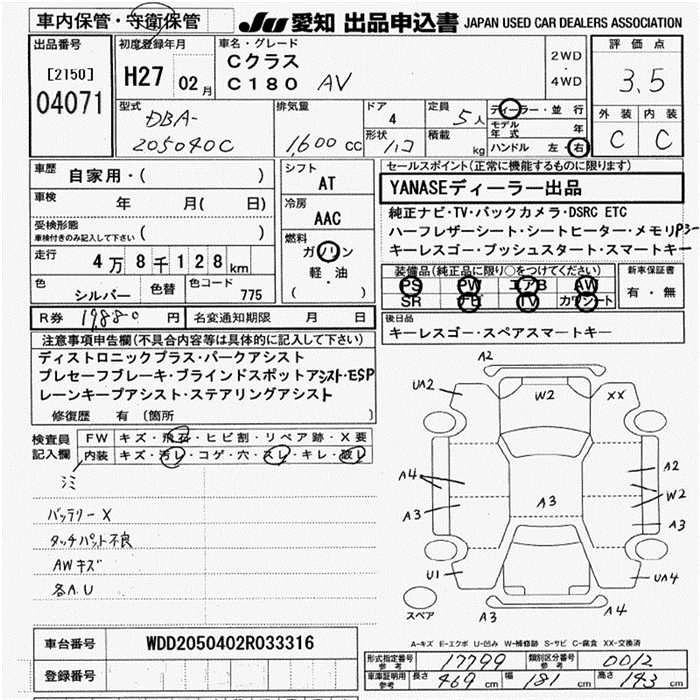 車内保管・守衛保管
JU 愛知 出品申込書 JAPAN USED CAR DEALERS ASSOCIATION
出品番号
[2150]
04071
初度登録年月
H27 02月
車名・グレード
Cクラス
C180 AV
2WD
・
4WD
評価点
3.5
外装 内装
C C
型式
DBA-
205040C
排気量
1600 cc
ドア
4
形状
ハコ
定員
5人
積載
kg
ディーラー・並行
モデル年式 年
ハンドル 左・右
車歴
自家用・( )
車検
年 月( 日)
受検形態
車検付きのみ記入して下さい ( )
走行
4万8千128km
色
シルバー
色替
色コード
775
シフト
AT
冷房
AAC
燃料
ガソリン
軽・油
( )
セールスポイント(正常に機能するものに限ります)
YANASEディーラー出品
純正ナビ・TV・バックカメラ・DSRC ETC
ハーフレザーシート・シートヒーター・メモリP3-
キーレスゴー・プッシュスタート・スマートキー
装備品(純正品に限り○をつけてください)
PS PW エアB AW
SR ナビ TV カワシート
新車保証書
有・無
R券 19,880円
名変通知期限 月 日
後日品
キーレスゴー・スペアスマートキー
注意事項申告欄(不具合内容等は具体的に記入して下さい)
ディストロニックプラス・パークアシスト
プレセーフブレーキ・ブラインドスポットアシスト・ESP
レーンキープアシスト・ステアリングアシスト
修復歴 有(箇所 )
検査員記入欄
FW キズ・飛石・ヒビ割・リペア跡・X要
内装 キズ・汚レ・コゲ・穴・スレ・キレ・破レ
シミ
バッテリーX
タッチパット不良
AWキズ
各A.U
A2
UA2
W2
XX
A4
A3
A3
A2
W2
A3
U1
UA4
スペア
A3
A4
A-キズ E-エクボ U-凹み W-補修跡 S-サビ C-腐食 XX-交換済
車台番号 WDD2050402R033316
登録番号
形式指定番号 参考 17799
類別区分番号 参考 0012
車庫証明用 参考
長さ 469cm
幅 181cm
高さ 143cm